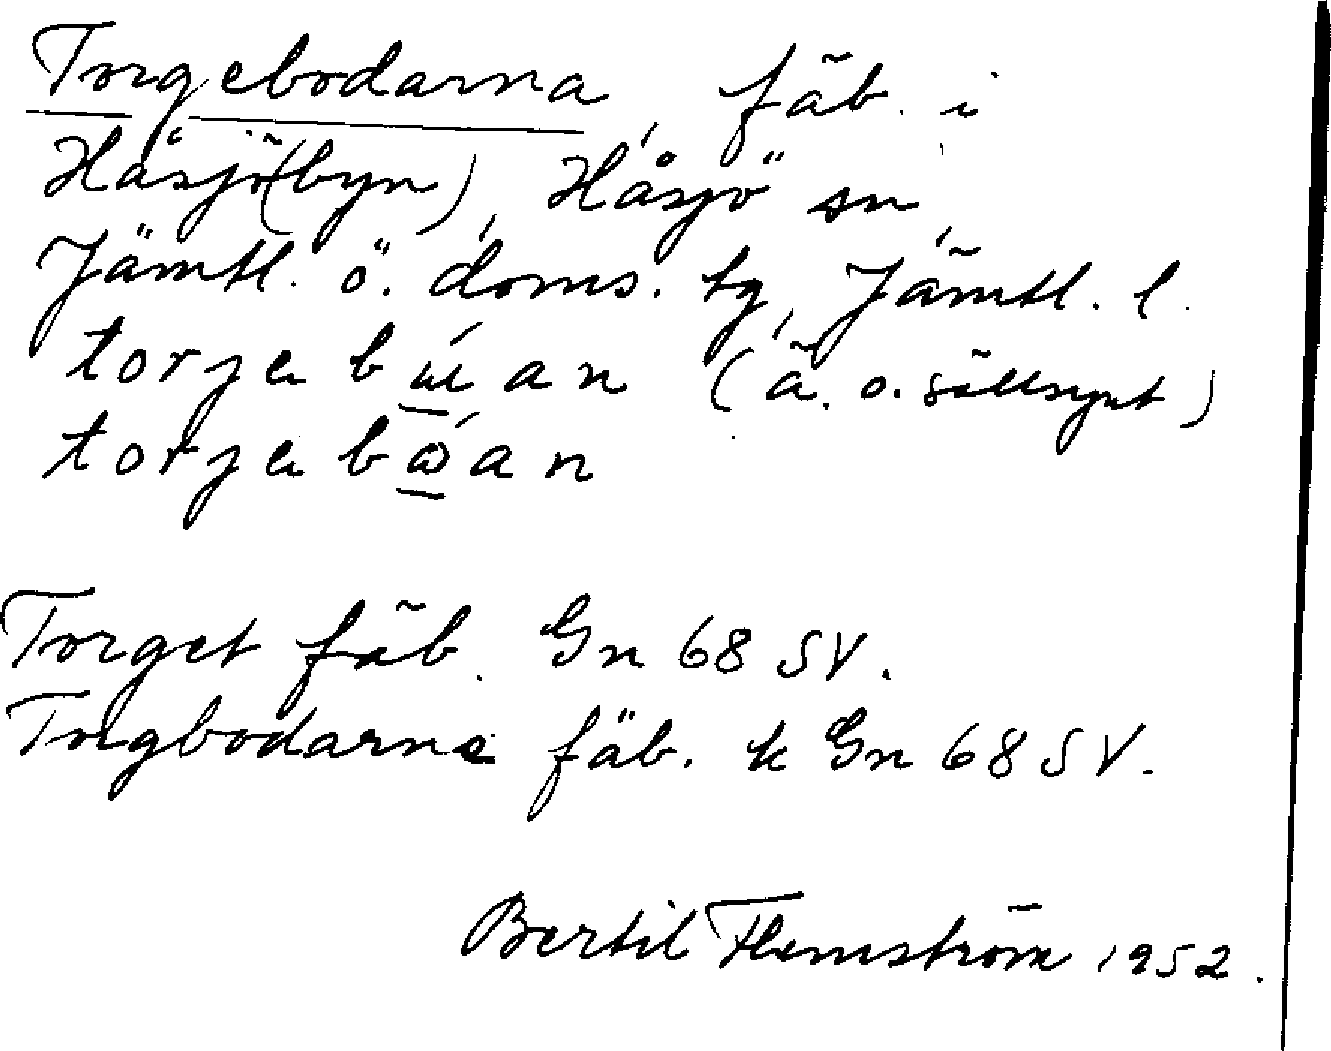 Torgebodarna, fäb. i
Håsjö(byn), Håsjö sn,
Jämtl. ö. doms. tg, Jämtl. l.
(ä. o. sällsynt)
Torget fäb. Gn 68 SV.
Torgbodarne fäb. k Gn 68 SV.
Bertil Flemström 1952.